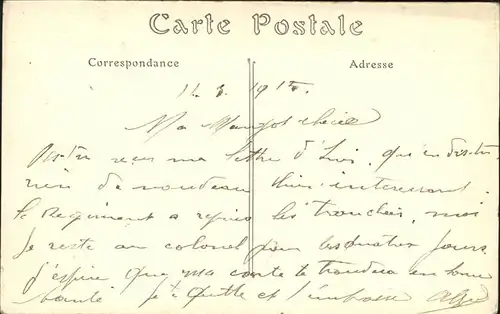 Carte Postale
Correspondance
Adresse
Ma chérie
reçu ma lettre d'hier, qui
rien de nouveau bien interessant.
le Regiment a repris les tranchées, moi
Je reste au colonel pour les quatre jours
J'espère que ma carte te trouvera en bonne
santé Je te quitte et t'embrasse